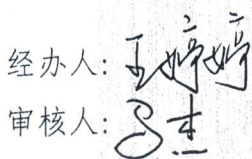 经办人:王婷婷
审核人: